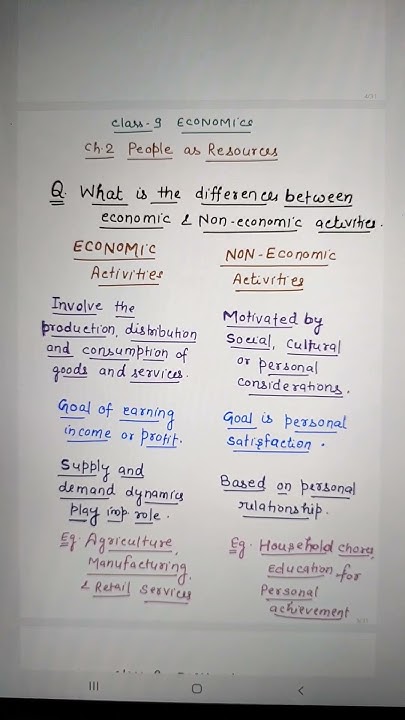 Class-9 ECONOMICS
Ch.2 People as Resources
Q. What is the differences between
economic & Non-economic activities.
ECONOMIC
Activities
Involve the
production, distribution
and consumption of
goods and services.
Goal of earning
income or profit.
Supply and
demand dynamics
play imp role.
Eg. Agriculture,
Manufacturing,
& Retail Services
NON-Economic
Activities
Motivated by
Social, Cultural
or personal
considerations.
Goal is personal
satisfaction.
Based on personal
relationship.
Eg. Household chores,
Education for
Personal
achievement